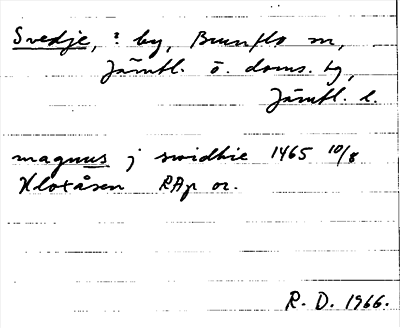 Svedje, ? by, Brunflo sn,
Jämtl. ö. doms. tg,
Jämtl. l.
magnus j swidhie 1465 10/8
Klotåsen RAp or.
R. D. 1966.